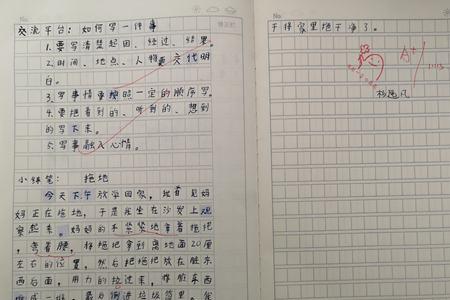 No.
交流平台：如何写一件事
1.要写清楚起因、经过、结果。
2.时间、地点、人物要交代明
白。
3.写事情要按照一定的顺序写。
4.要把看到的、听到的、想到
的写下来。
5.写事融入心情。
小练笔：拖地
今天下午放学回家，我看见妈
妈正在拖地，于是我坐在沙发上观
察起来。妈妈的手紧紧地拿着拖把，
弯着腰，将拖把拿到离地面20厘
左右的位置，然后把拖把放在脏东
西后面，用力的拉过来，将脏东西
No.
于将家里拖干净了。
A+